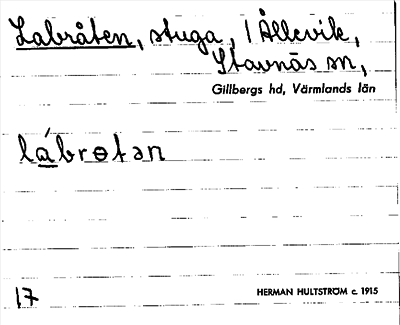 Labråten, stuga, i Ållevik,
Stavnäs sn,
Gillbergs hd, Värmlands län
lábrɵtən
17
HERMAN HULTSTRÖM c. 1915